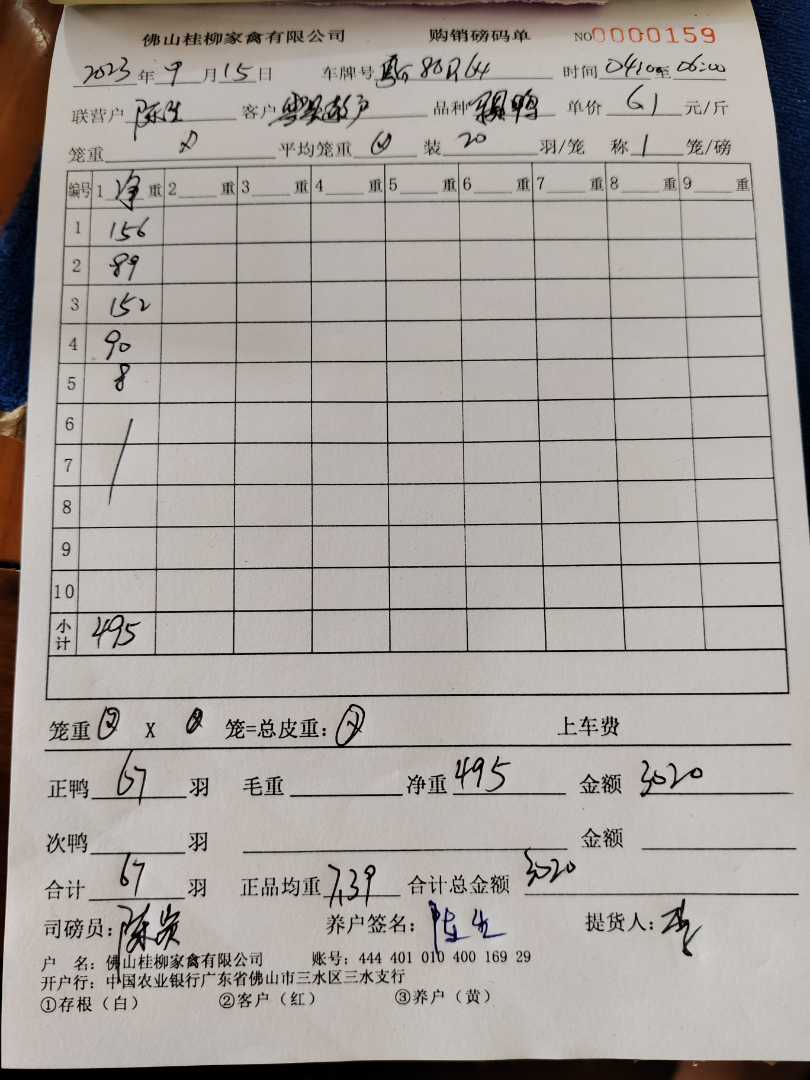 佛山桂柳家禽有限公司 购销磅码单 NO0000159
2023年9月15日 车牌号 时间0410至06:00
联营户 陈生 客户 品种 鸭 单价 61 元/斤
笼重 平均笼重 装 20 羽/笼 称 1 笼/磅
编号 1 净 重 2 重 3 重 4 重 5 重 6 重 7 重 8 重 9 重
1 156
2 89
3 152
4 90
5 8
6
7
8
9
10
小计 495
笼重 X 笼=总皮重: 上车费
正鸭 67 羽 毛重 净重 495 金额 3020
次鸭 羽 金额
合计 67 羽 正品均重 7.39 合计总金额 3020
司磅员: 陈 养户签名: 陈生 提货人: 李
户 名: 佛山桂柳家禽有限公司 账号: 444 401 010 400 169 29
开户行: 中国农业银行广东省佛山市三水区三水支行
①存根(白) ②客户(红) ③养户(黄)